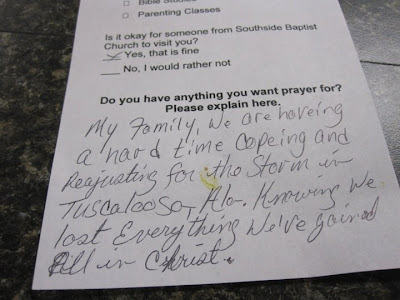 ☐ Bible Studies
☐ Parenting Classes
Is it okay for someone from Southside Baptist
Church to visit you?
Yes, that is fine
___ No, I would rather not
Do you have anything you want prayer for?
Please explain here.
My Family, We are haveing
a hard time Copeing and
Reajusting for the Storm in
Tuscaloosa, Ala. Knowing We
lost Everything We've gained
All in Christ.